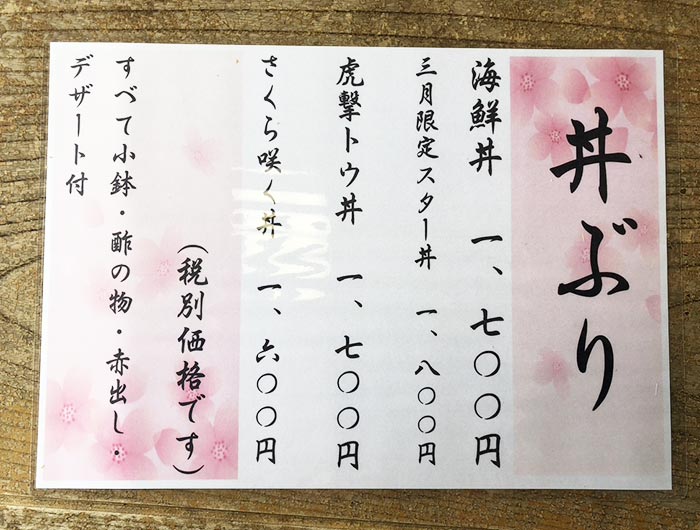 丼ぶり
海鮮丼 一、七〇〇円
三月限定スター丼 一、八〇〇円
虎撃トウ丼 一、七〇〇円
さくら咲く丼 一、六〇〇円
(税別価格です)
すべて小鉢・酢の物・赤出し・
デザート付